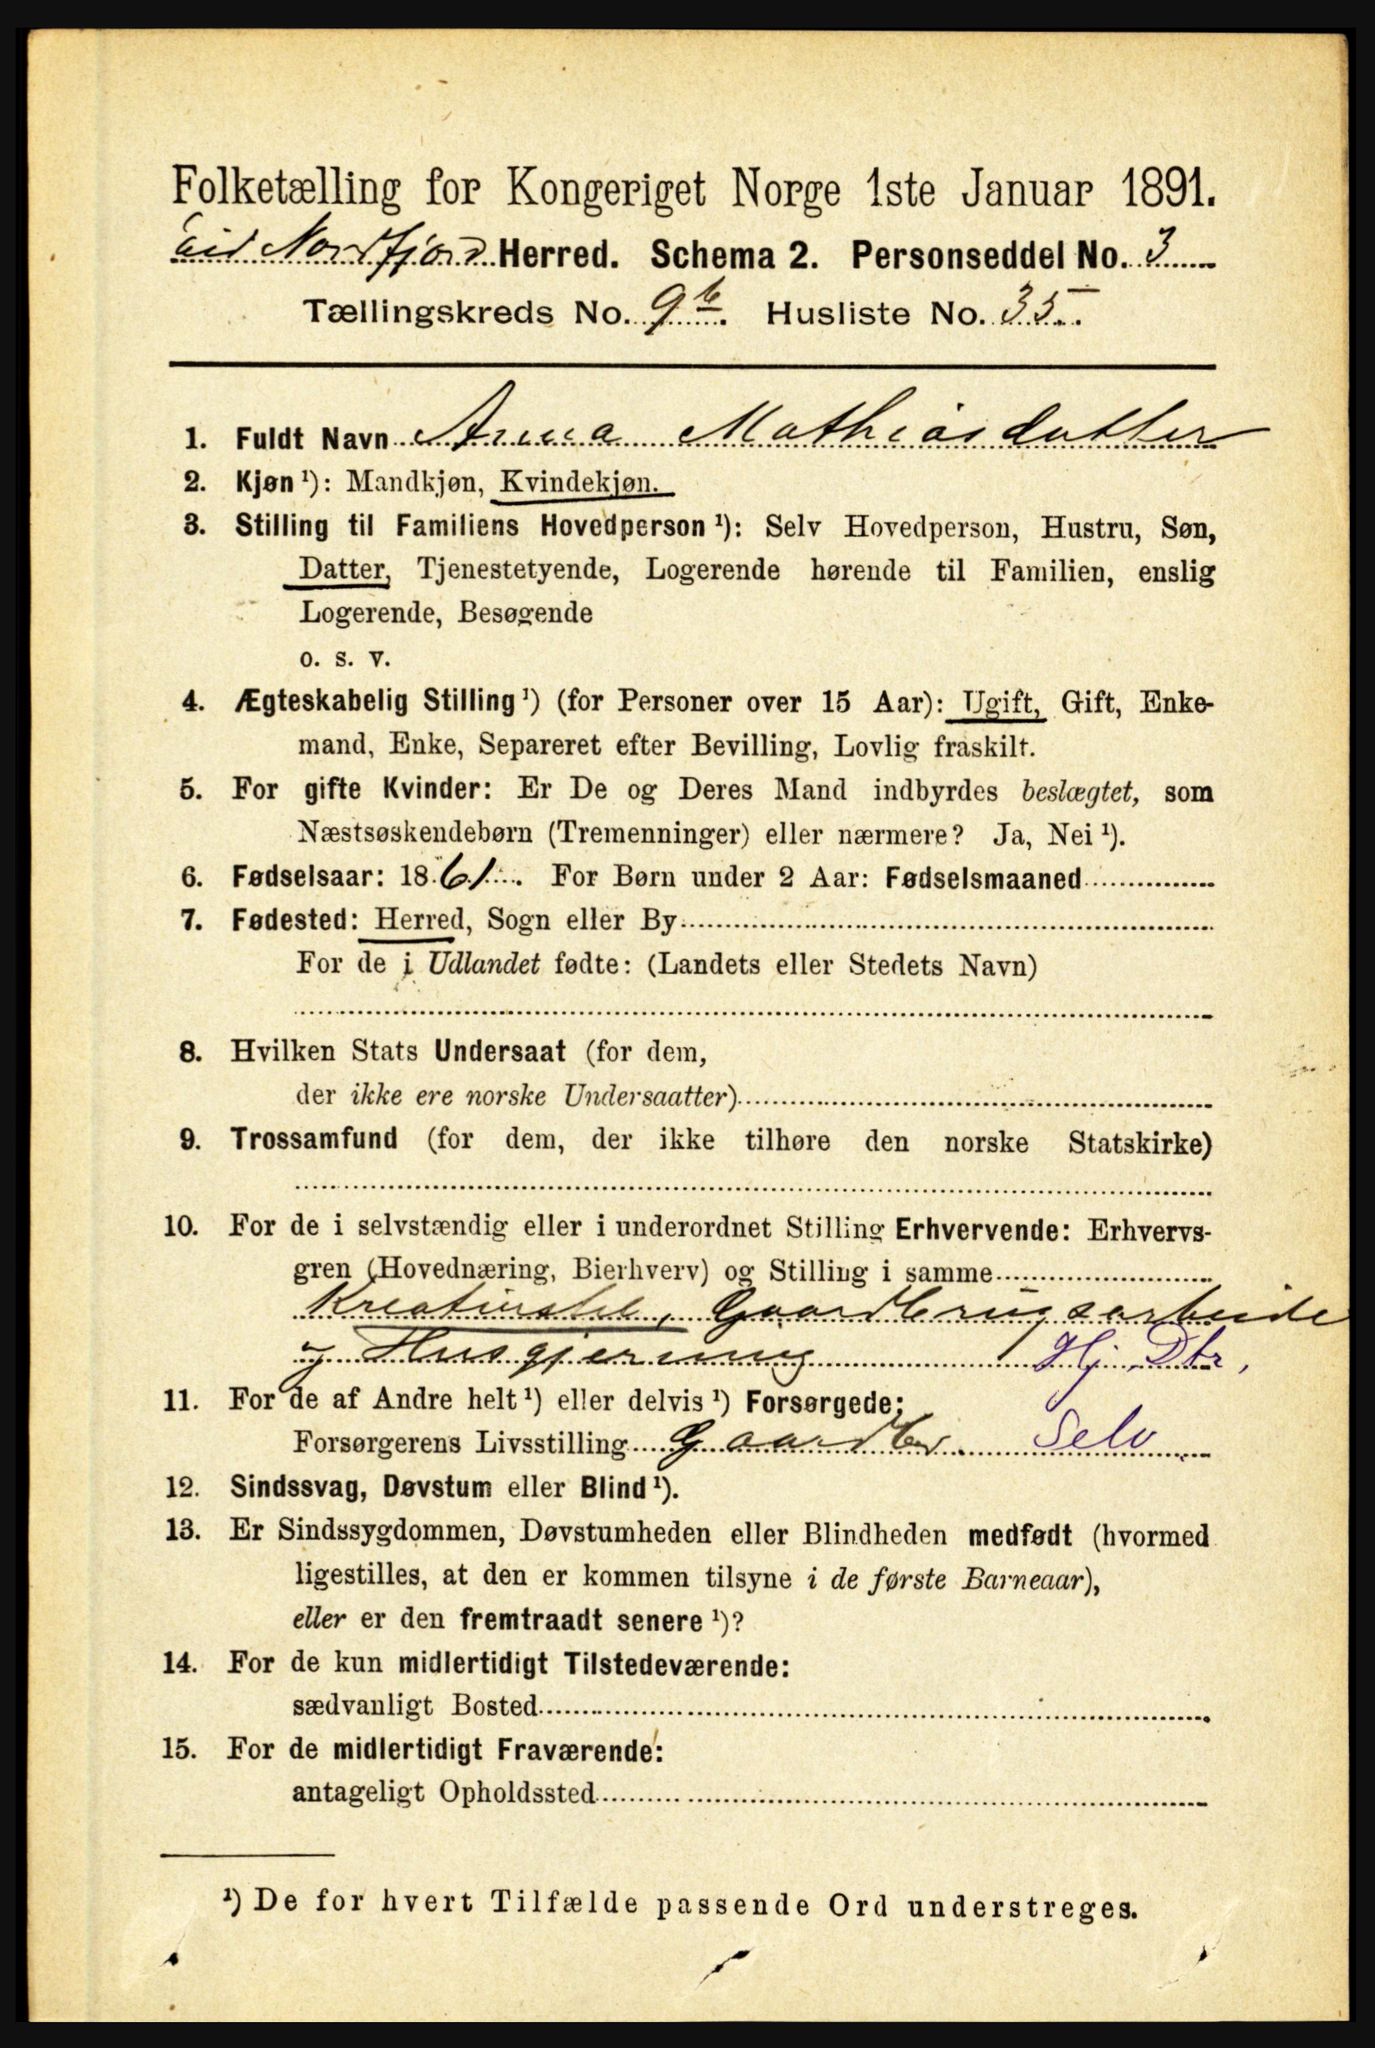 Folketælling for Kongeriget Norge 1ste Januar 1891.
Eid Nordfjord Herred. Schema 2. Personseddel No. 3
Tællingskreds No. 9b. Husliste No. 35
1. Fuldt Navn Anna Mathiasdatter
2. Kjøn ¹): Mandkjøn, Kvindekjøn.
3. Stilling til Familiens Hovedperson ¹): Selv Hovedperson, Hustru, Søn,
Datter, Tjenestetyende, Logerende hørende til Familien, enslig
Logerende, Besøgende
o. s. v.
4. Ægteskabelig Stilling ¹) (for Personer over 15 Aar): Ugift, Gift, Enke-
mand, Enke, Separeret efter Bevilling, Lovlig fraskilt.
5. For gifte Kvinder: Er De og Deres Mand indbyrdes beslægtet, som
Næstsøskendebørn (Tremenninger) eller nærmere? Ja, Nei ¹).
6. Fødselsaar: 1861. For Børn under 2 Aar: Fødselsmaaned
7. Fødested: Herred, Sogn eller By
For de i Udlandet fødte: (Landets eller Stedets Navn)
8. Hvilken Stats Undersaat (for dem,
der ikke ere norske Undersaatter)
9. Trossamfund (for dem, der ikke tilhøre den norske Statskirke)
10. For de i selvstændig eller i underordnet Stilling Erhvervende: Erhvervs-
gren (Hovednæring, Bierhverv) og Stilling i samme
Kreaturstel, Gaardbrugsarbeide
og Husgjerning Hj. Dtr,
11. For de af Andre helt ¹) eller delvis ¹) Forsørgede:
Forsørgerens Livsstilling Gaardbr. Selv.
12. Sindssvag, Døvstum eller Blind ¹).
13. Er Sindssygdommen, Døvstumheden eller Blindheden medfødt (hvormed
ligestilles, at den er kommen tilsyne i de første Barneaar),
eller er den fremtraadt senere ¹)?
14. For de kun midlertidigt Tilstedeværende:
sædvanligt Bosted
15. For de midlertidigt Fraværende:
antageligt Opholdssted
¹) De for hvert Tilfælde passende Ord understreges.